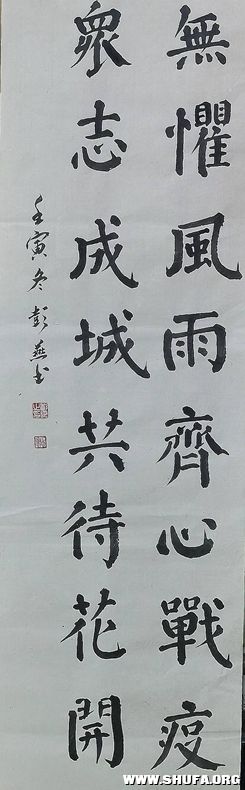 無懼風雨齊心戰疫
衆志成城共待花開
壬寅冬彭燕书
WWW.SHUFA.ORG